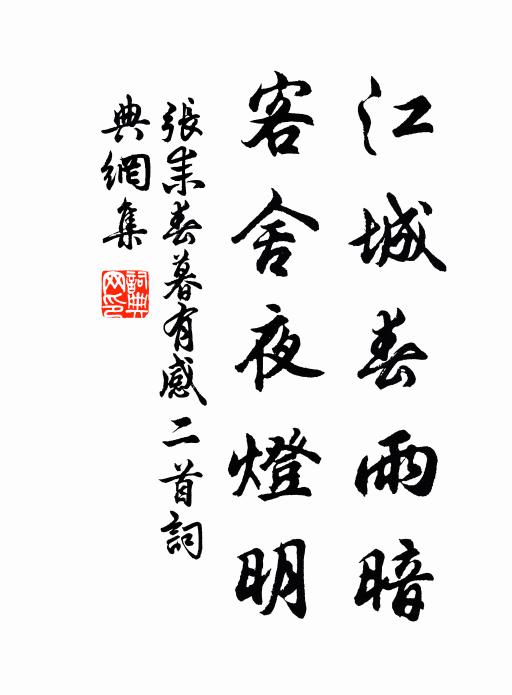 江城春雨暗
客舍夜燈明
張耒春暮有感二首詞
典網集
詞典網印